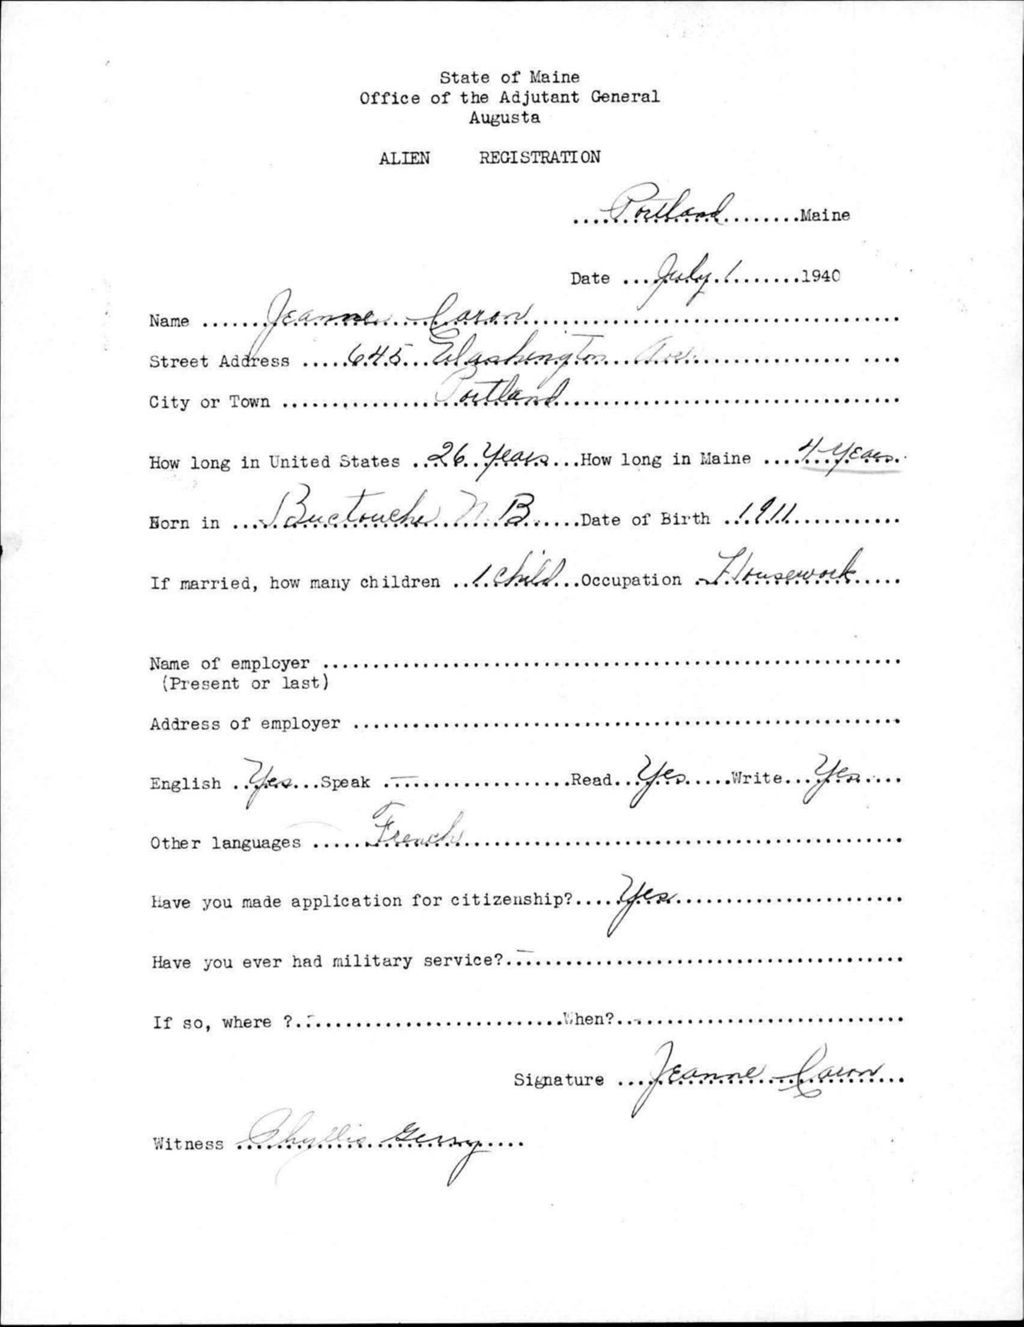 State of Maine
Office of the Adjutant General
Augusta
ALIEN REGISTRATION
....Portland.........Maine
Date ...July 1.......1940
Name .......Jeanne Caron..............................
Street Address .....645 Washington Ave..................... ....
City or Town ...............Portland..............................
How long in United States ..26 Years...How long in Maine ....4 Years.
Born in ...Buctouche N.B......Date of Birth ..1911............
If married, how many children ..1 Child...Occupation ..Housework.....
Name of employer ..........................................................
(Present or last)
Address of employer .......................................................
English ..Yes...Speak .—..................Read..Yes.....Write...Yes.....
Other languages .....French............................................
Have you made application for citizenship?....Yes.......................
Have you ever had military service?..—.....................................
If so, where ?.-.........................When?..-..........................
Signature ...Jeanne Caron...
Witness Phyllis Gerry....